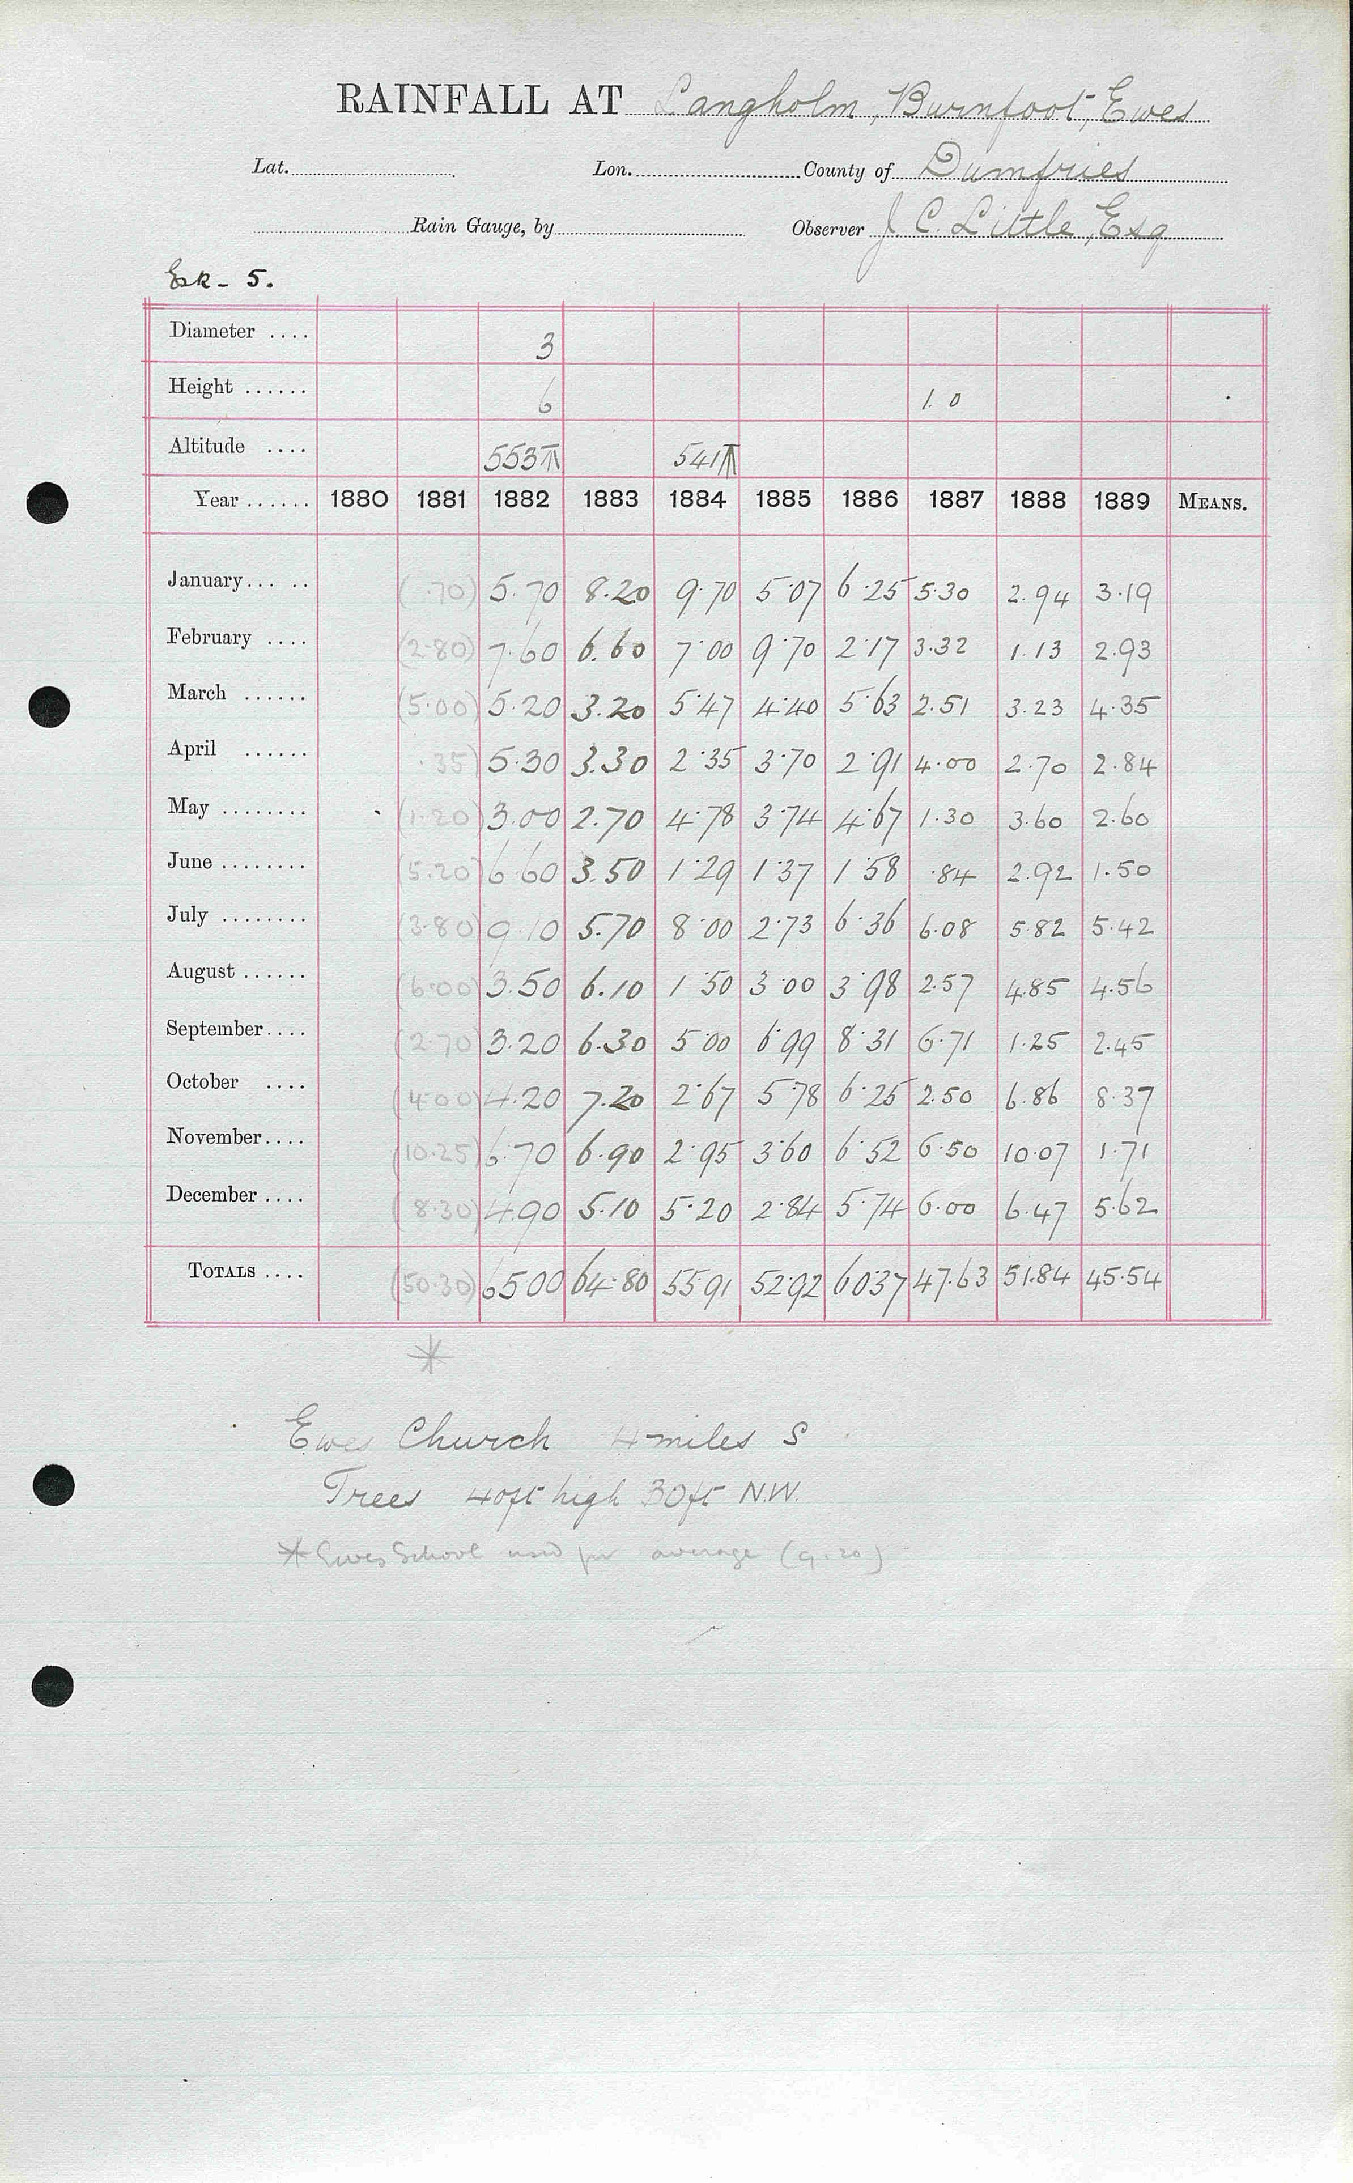 RAINFALL AT Langholm, Burnfoot, Ewes
Lat. Lon. County of Dumfries
Rain Gauge, by Observer J. C. Little, Esq
Esk - 5.
Diameter .... 3
Height ...... 6 1. 0
Altitude .... 553 541
Year ...... 1880 1881 1882 1883 1884 1885 1886 1887 1888 1889 MEANS.
January... .. (.70) 5.70 8.20 9.70 5.07 6.25 5.30 2.94 3.19
February .... (2.80) 7.60 6.60 7.00 9.70 2.17 3.32 1.13 2.93
March ...... (5.00) 5.20 3.20 5.47 4.40 5.63 2.51 3.23 4.35
April ...... .35) 5.30 3.30 2.35 3.70 2.91 4.00 2.70 2.84
May ........ (1.20) 3.00 2.70 4.78 3.74 4.67 1.30 3.60 2.60
June ........ (5.20) 6.60 3.50 1.29 1.37 1.58 .84 2.92 1.50
July ........ (3.80) 9.10 5.70 8.00 2.73 6.36 6.08 5.82 5.42
August ...... (6.00) 3.50 6.10 1.50 3.00 3.98 2.57 4.85 4.56
September.... (2.70) 3.20 6.30 5.00 6.99 8.31 6.71 1.25 2.45
October .... (4.00) 4.20 7.20 2.67 5.78 6.25 2.50 6.86 8.37
November.... (10.25) 6.70 6.90 2.95 3.60 6.52 6.50 10.07 1.71
December .... (8.30) 4.90 5.10 5.20 2.84 5.74 6.00 6.47 5.62
TOTALS .... (50.30) 65 00 64.80 55 91 52.92 60 37 47.63 51.84 45.54
*
Ewes Church 4 miles S
Trees 40ft high 30ft N.W.
* Ewes School used for average (9.20)